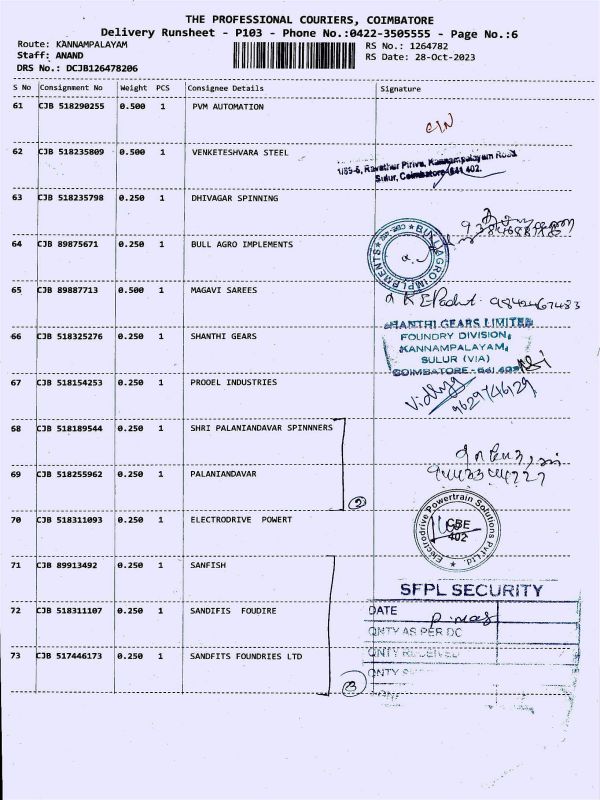 THE PROFESSIONAL COURIERS, COIMBATORE
Delivery Runsheet - P103 - Phone No.:0422-3505555 - Page No.:6
Route: KANNAMPALAYAM
RS No.: 1264782
Staff: ANAND
RS Date: 28-Oct-2023
DRS No.: DCJB126478206
S No Consignment No Weight PCS Consignee Details Signature
61 CJB 518290255 0.500 1 PVM AUTOMATION
62 CJB 518235809 0.500 1 VENKETESHVARA STEEL
Kannampalayam Road
Sulur, Coimbatore-641 402.
63 CJB 518235798 0.250 1 DHIVAGAR SPINNING
64 CJB 89875671 0.250 1 BULL AGRO IMPLEMENTS
BULL AGRO IMPLEMENTS
65 CJB 89887713 0.500 1 MAGAVI SAREES
9842467483
66 CJB 518325276 0.250 1 SHANTHI GEARS
SHANTHI GEARS LIMITED
FOUNDRY DIVISION,
KANNAMPALAYAM,
SULUR (VIA)
COIMBATORE - 641 402
67 CJB 518154253 0.250 1 PROOEL INDUSTRIES
Vidhya
9629746129
68 CJB 518189544 0.250 1 SHRI PALANIANDAVAR SPINNNERS
69 CJB 518255962 0.250 1 PALANIANDAVAR
2
70 CJB 518311093 0.250 1 ELECTRODRIVE POWERT
Electrodrive Powertrain Solutions Pvt Ltd.
CBE
402
71 CJB 89913492 0.250 1 SANFISH
SFPL SECURITY
72 CJB 518311107 0.250 1 SANDIFIS FOUDIRE
DATE
QNTY AS PER DC
73 CJB 517446173 0.250 1 SANDFITS FOUNDRIES LTD
QNTY RECEIVED
QNTY
3